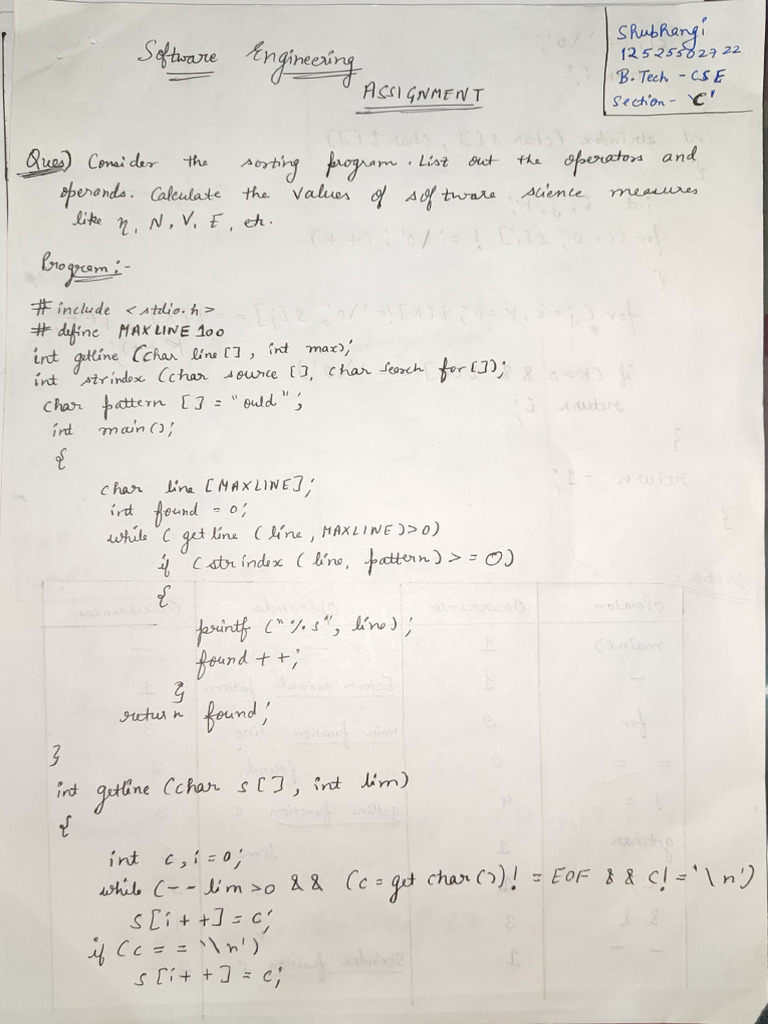 Software Engineering
ASSIGNMENT
Shubhangi
12525502722
B.Tech - CSE
Section - 'C'
Ques) Consider the sorting program. List out the operators and
operands. Calculate the values of software science measures
like η, N, V, E, etc.
Program:-
# include <stdio.h>
# define MAXLINE 100
int getline (char line [], int max);
int strindex (char source [], char search for []);
char pattern [] = "ould";
int main();
{
char line [MAXLINE];
int found = 0;
while ( getline (line, MAXLINE)>0)
if (strindex (line, pattern) >= 0)
{
printf ("%s", line);
found ++;
}
return found;
}
int getline (char s[], int lim)
{
int c, i = 0;
while (-- lim >0 && (c = get char()) != EOF && c! = '\n')
s[i ++] = c;
if (c == '\n')
s[i ++] = c;